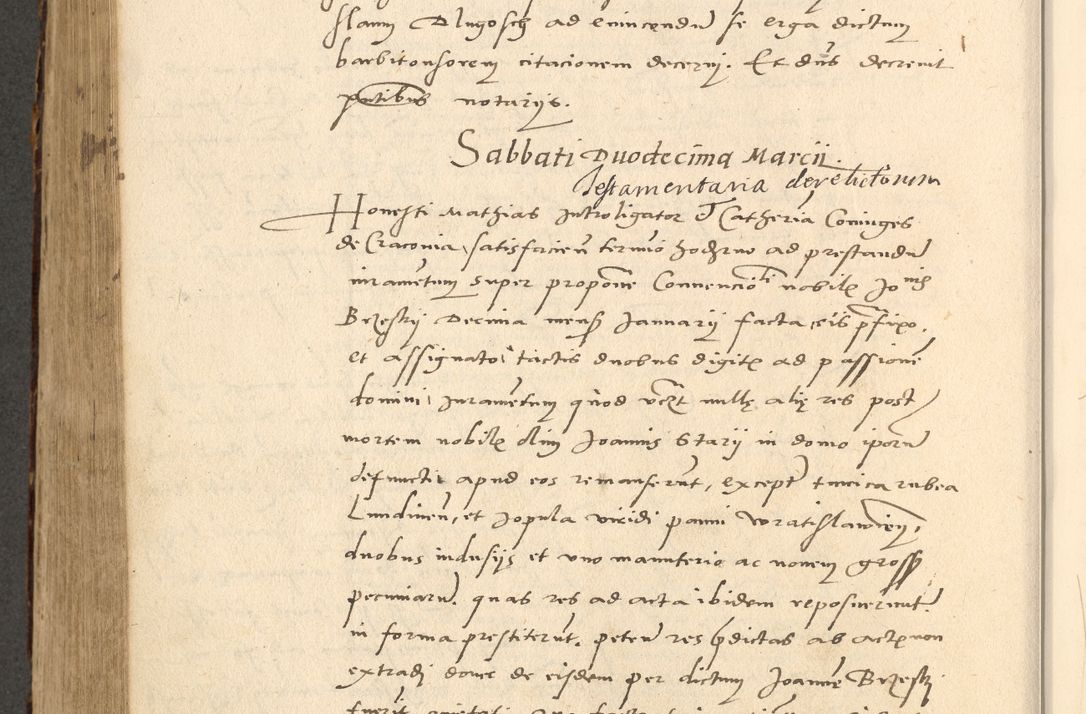 slaum Dlugosch ad evincendũ se erga dictum
barbitonsorem citacionem decerni. Et dñs decrevit
pñtibus notariis.
Sabbati Duodecima Marcii.
Testamentaria derelictorum
Honesti Mathias Introligator et Catheria Coniuges
de Cracovia, satisfacien̄ termio hodierno ad prestandũ
iuramẽtum super propõne Convencioti nobilis Joñis
Brzeski Decima mens Januarii facta eis p̃fixo,
et assignato, tactis duobus digitis ad passionẽ
domini, iuramẽtum quod vczt nullę alię res post
mortem nobilis olim Joannis Starii in domo ipsorũ
defuncti apud eos remanserũt, exceptis tunica rubea
Lundinen̄, et Jopula viridi panni Wratislavien̄,
duobus indusiis et uno manuterio ac novem gross
pecuniarũ. quas res ad acta ibidem reposuerunt.
in forma prestiterũt. petens res p̃dictas ab actis non
extradi donec de eisdem per dictum Joannẽ Brzeski
fuerit